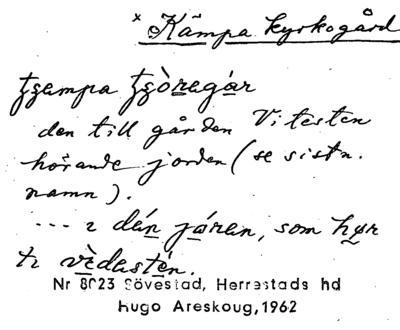 × Kämpa kyrkogård
ʈʂempa ʈʂòregár
den till gården Vitesten
hörande jorden (se sistn.
namn).
... i dén jóren, som hyr
ti vèdestén.
Nr 8023 Sövestad, Herrestads hd
Hugo Areskoug, 1962